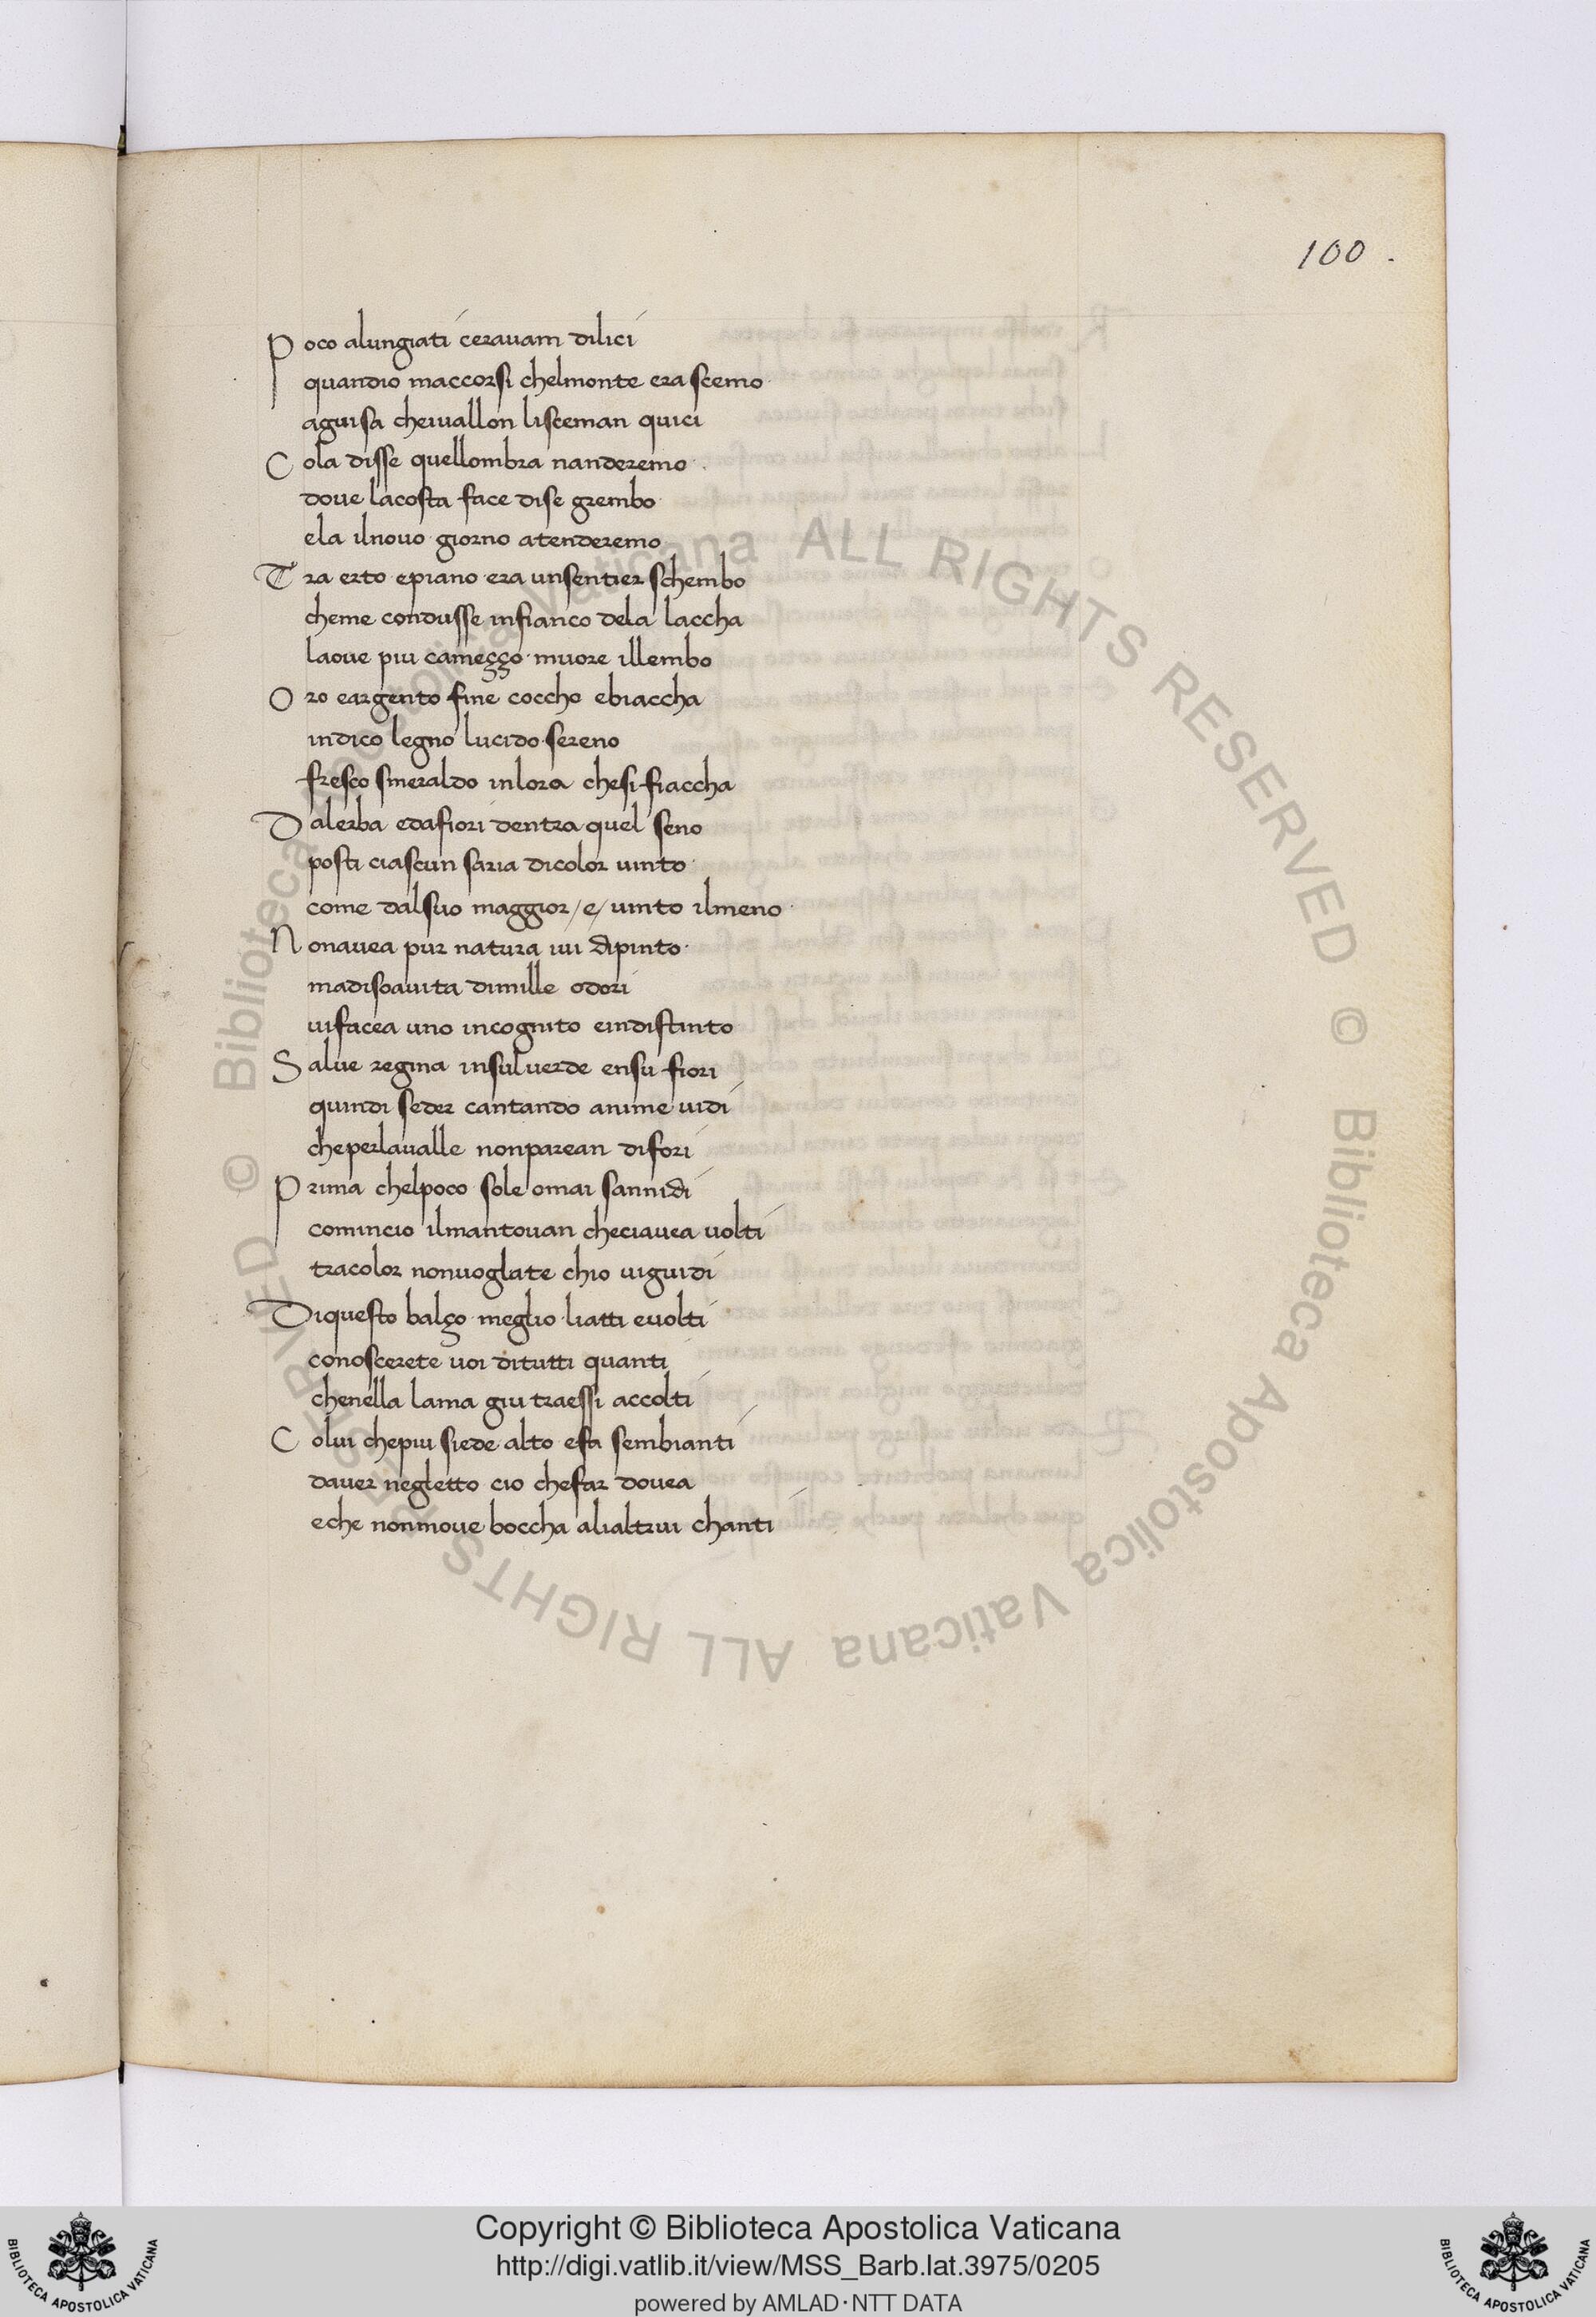 100.
Poco alungiati ceravam dilici
quandio maccorsi chelmonte era scemo
aguisa cheivallon lisceman quici
Cola disse quellombra nanderemo
dove lacosta face dise grembo
ela ilnovo giorno atenderemo
Tra erto epiano era unsentier schembo
cheme condusse infianco dela laccha
laove piu cameççо muore illembo
Oro eargento fine coccho ebiaccha
indico legno lucido sereno
fresco smeraldo inlora chesi fiaccha
Dalerba edafiori dentra quel seno
posti ciascun saria dicolor uinto
come dalsuo maggior /e/ uinto ilmeno
Nonavea pur natura iui dipinto
madisoauita dimille odori
uifacea uno incognito eindistinto
Salve regina insulverde ensu fiori
quindi seder cantando anime uidi
cheperlaualle nonparean difori
Prima chelpoco sole omai sannidi
comincio ilmantovan checiavea volti
tracolor nonvoglate chio uiguidi
Diquesto balço meglio liatti evolti
conoscerete voi ditutti quanti
chenella lama giu traessi accolti
Colui chepiu siede alto efa sembianti
daver negletto cio chefar dovea
eche nonmove boccha alialtrui chanti
© Biblioteca Apostolica Vaticana ALL RIGHTS RESERVED
© Biblioteca Apostolica Vaticana ALL RIGHTS RESERVED
BIBLIOTECA APOSTOLICA VATICANA
Copyright © Biblioteca Apostolica Vaticana
http://digi.vatlib.it/view/MSS_Barb.lat.3975/0205
powered by AMLAD·NTT DATA
BIBLIOTECA APOSTOLICA VATICANA